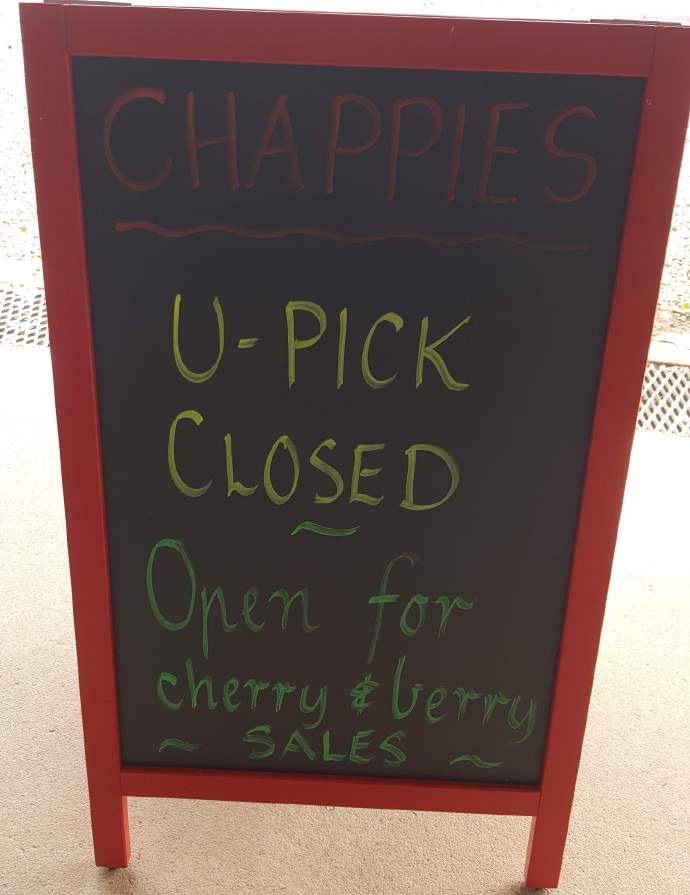 CHAPPIES
U-PICK
CLOSED
~
Open for
cherry & berry
~ SALES ~